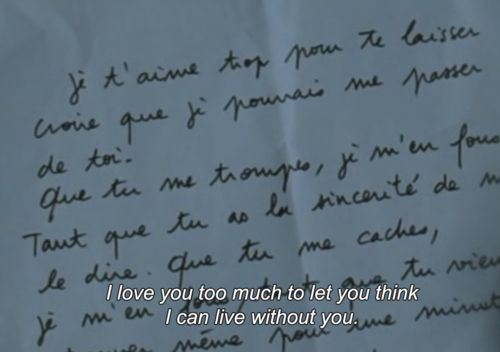 je t'aime trop pour te laisser
croire que je pourrais me passer
de toi.
Que tu me trompes, je m'en fous
Tant que tu as la sincérité de m
le dire. Que tu me caches,
je m'en que tu vien
même pour une minut
I love you too much to let you think
I can live without you.